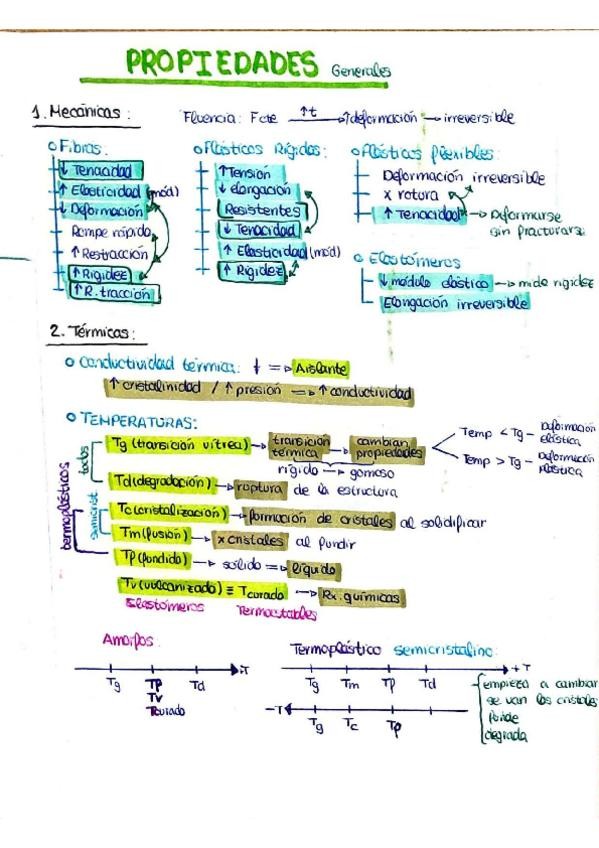 PROPIEDADES Generales
1. Mecánicas:
Fluencia: F cte ↑t → ↑deformación → irreversible
o Fibras:
↓ Tenacidad
↑ Elasticidad (mód)
↓ Deformación
Rompe rápido
↑ Restracción
↑ Rigidez
↑ R. tracción
o Plásticos Rígidos:
↑ Tensión
↓ elongación
Resistentes
↓ Tenacidad
↑ Elasticidad (mód)
↑ Rigidez
o Plásticos flexibles:
Deformación irreversible
x rotura
↑ Tenacidad → Deformarse
sin fracturarse
o Elastómeros
↓ módulo elástico → mide rigidez
Elongación irreversible
2. Térmicas:
o Conductividad térmica: ↓ => Aislante
↑ cristalinidad / ↑ presión => ↑ conductividad
o TEMPERATURAS:
termoplásticos
todos
semicrist
Tg (transición vítrea) → transición térmica → cambian propiedades
rígido → gomoso
Temp < Tg - Deformación elástica
Temp > Tg - Deformación plástica
Td (degradación) → ruptura de la estructura
Tc (cristalización) → formación de cristales al solidificar
Tm (fusión) → x cristales al fundir
Tf (fundido) → sólido => líquido
Tv (vulcanizado) ≡ Tcurado → Rx. químicas
Elastómeros Termoestables
Amorfos:
+T
Tg Tf Td
Tv
Tcurado
Termoplástico semicristalino:
+T
Tg Tm Tf Td
-T
Tg Tc Tf
empieza a cambiar
se van los cristales
funde
degrada